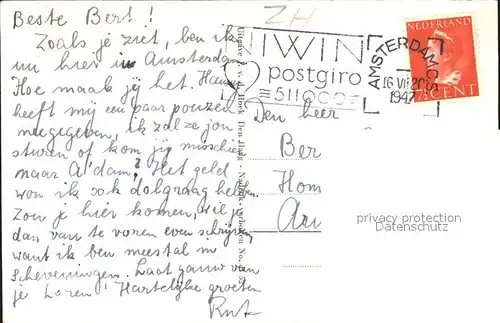 Beste Bert!
Zoals je ziet, ben ik
nu hier in Amsterdam.
Hoe maak jij het. Hans
heeft mij een paar
meegegeven, ik zal ze jou
sturen of kom jij misschien
naar A'dam? Het geld
wou ik ook dolgraag hebben.
Zou je hier komen, wil je
dan van te voren even schrijven
want ik ben meestal in
Scheveningen. Laat gauw van
je horen! Hartelijke groeten
Rut
ZH
WIN
postgiro
511000
AMSTERDAM
16 VII 20
1947
NEDERLAND
7½ CENT
Den heer
Ber
Hom
privacy protection
Datenschutz
Den Haag